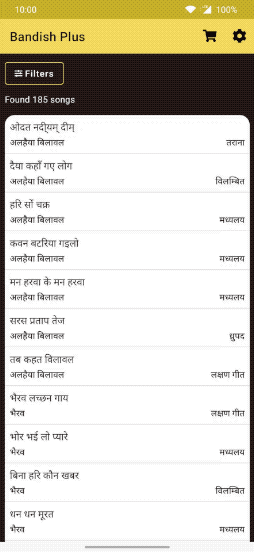 10:00 100%
Bandish Plus
Filters
Found 185 songs
ओदत नदी्यम् दीम्
अलहैया बिलावल तराना
दैया कहाँ गए लोग
अलहैया बिलावल विलम्बित
हरि सों चक्र
अलहैया बिलावल मध्यलय
कवन बटरिया गइलो
अलहैया बिलावल मध्यलय
मन हरवा के मन हरवा
अलहैया बिलावल मध्यलय
सरस प्रताप तेज
अलहैया बिलावल ध्रुपद
तब कहत विलावल
अलहैया बिलावल लक्षण गीत
भैरव लच्छन गाय
भैरव लक्षण गीत
भोर भई लो प्यारे
भैरव मध्यलय
बिना हरि कौन खबर
भैरव विलम्बित
धन धन मूरत
भैरव मध्यलय